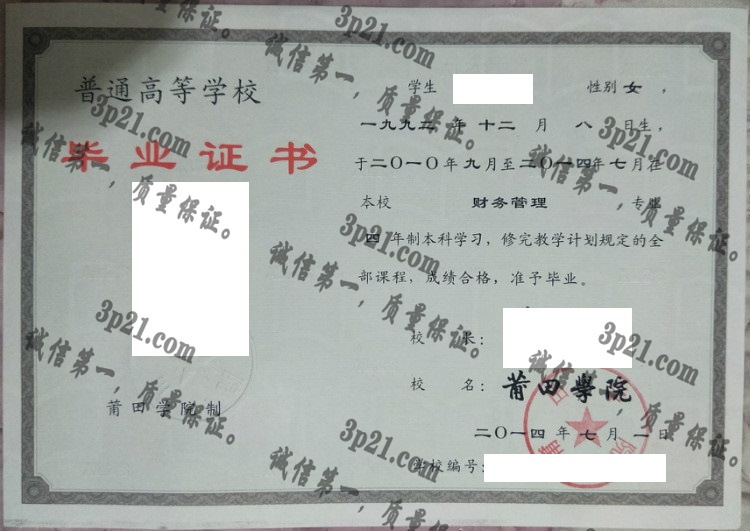 普通高等学校
毕业证书
莆田学院制
学生 性别 女 ，
一九九二 年 十二 月 八 日生，
于二〇一〇年 九月至二〇一四年 七月在
本校 财务管理 专业
四 年制本科学习，修完教学计划规定的全
部课程，成绩合格，准予毕业。
校 长：
校 名：莆田學院
二〇一四 年 七 月 一 日
学校编号：
3p21.com
诚信第一，质量保证。
3p21.com
诚信第一，质量保证。
3p21.com
诚信第一，质量保证。
3p21.com
诚信第一，质量保证。
3p21.com
诚信第一，质量保证。
3p21.com
诚信第一，质量保证。
3p21.com
诚信第一，质量保证。